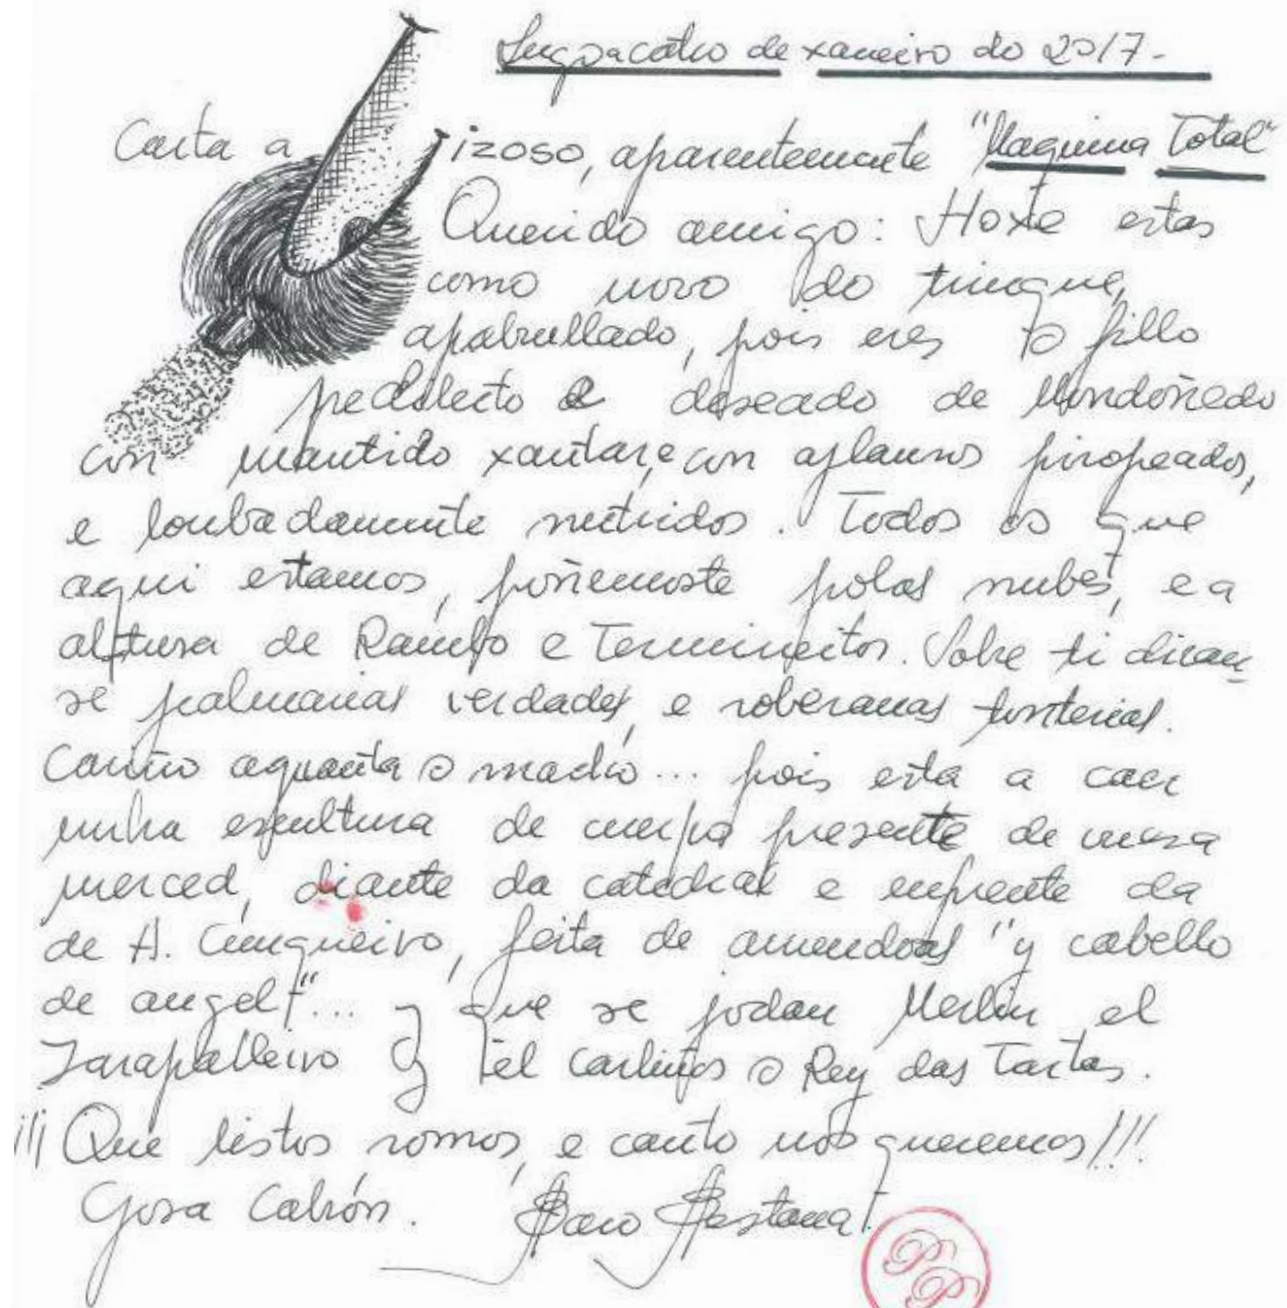 Lugo a catro de xaneiro do 2017.-
Carta a izoso, aparentemente "Maquina Total"
Querido amigo: Hoxe estas
como novo do trinque,
apabullado, pois eres o fillo
predilecto e deseado de Mondoñedo
con mantido xantar, e con aplausos piropeados,
e loubadamente nutridos. Todos os que
aqui estamos, poñemoste polas nubes, e a
altura de Rambo e Termineitor. Sobre ti dicen
se palmarias verdades, e soberanas tonterias.
Cariño aguanta o madio... pois esta a caer
unha escultura de cuerpo presente de vuesa
merced, diante da catedral e enfrente da
de A. Cunqueiro, feita de amendoas "y cabello
de angel"... y que se jodan Merlin, el
Zarapalleiro y el Carliños o Rey das Tartas.
¡¡¡ Que listos somos, e canto nos queremos!!!
Gosa Cabrón. Paco Pestana
PP